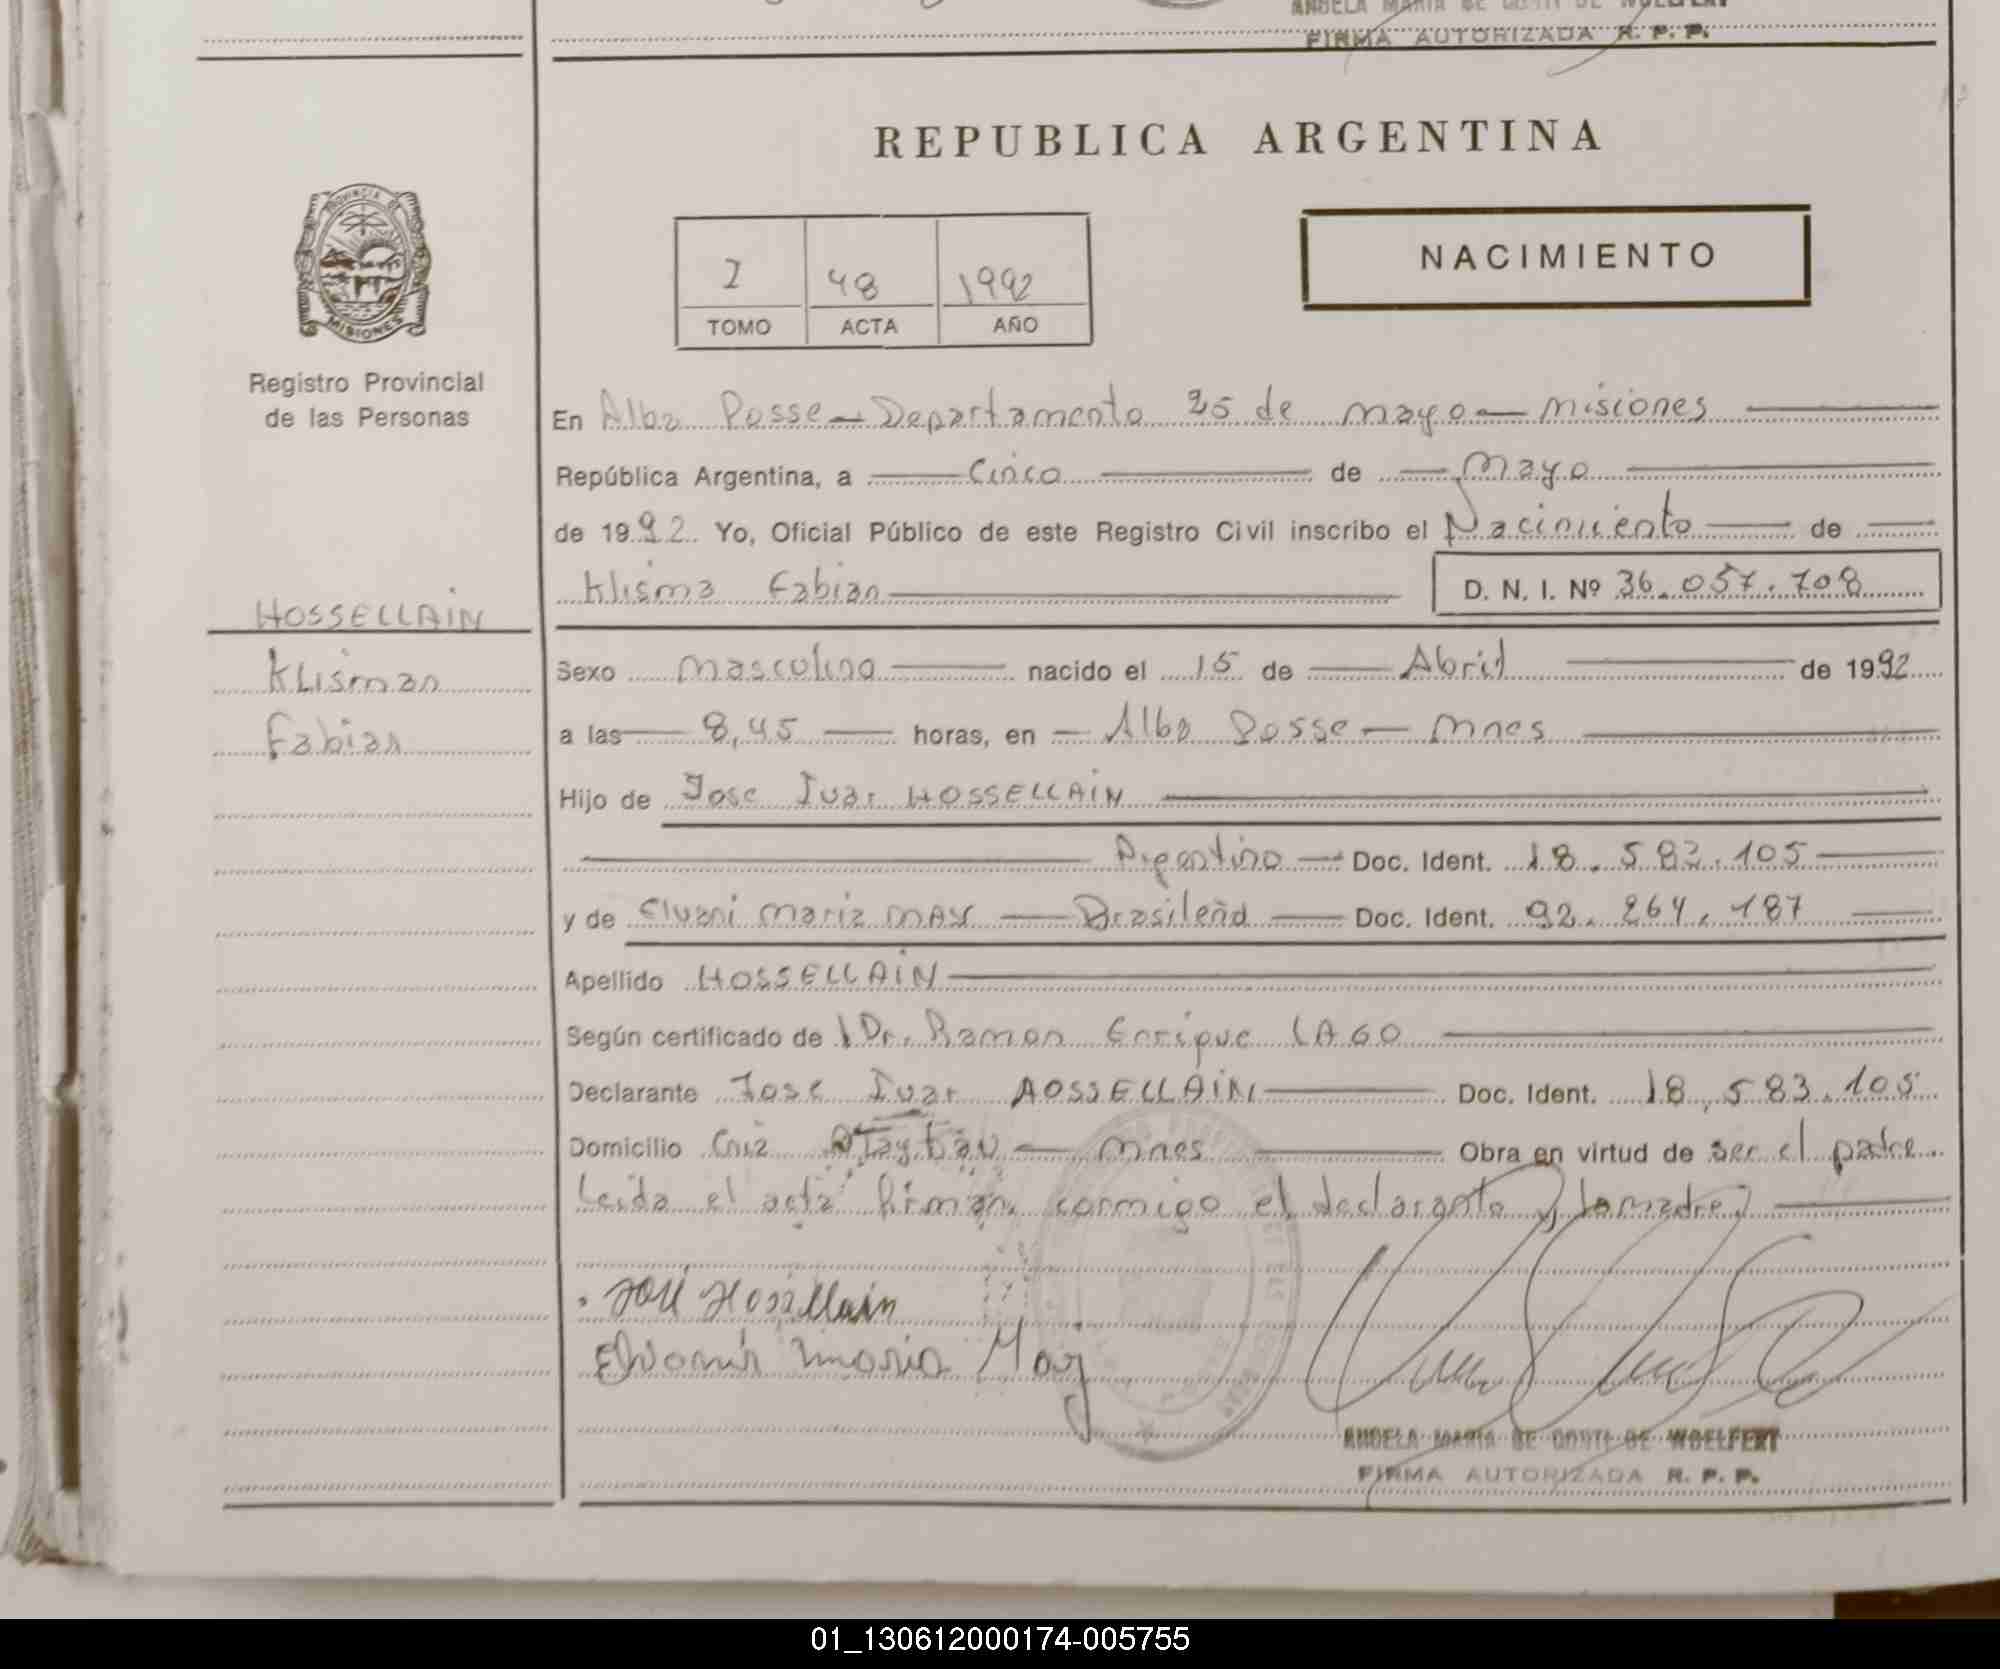 ANGELA MARIA DE CONTI DE WOELFERT
FIRMA AUTORIZADA R. P. P.
REPUBLICA ARGENTINA
PROVINCIA DE
MISIONES
I 48 1992
TOMO ACTA AÑO
NACIMIENTO
Registro Provincial
de las Personas
En Alba Posse — Departamento 25 de mayo — misiones
República Argentina, a — Cinco — de — Mayo
de 1992. Yo, Oficial Público de este Registro Civil inscribo el Nacimiento — de —
Klisma Fabian — D. N. I. Nº 36.057.708
HOSSELLAIN
Klisman
Fabian
Sexo masculino — nacido el 15 de — Abril — de 1992
a las — 8,45 — horas, en — Alba Posse — Mnes
Hijo de Jose Ivar HOSSELLAIN
Argentino — Doc. Ident. 18.583.105
y de Elvani maria MAY — Brasileña — Doc. Ident. 92.264.187
Apellido HOSSELLAIN
Según certificado de l Dr. Ramon Enrique LAGO
Declarante Jose Ivar HOSSELLAIN — Doc. Ident. 18,583.105
Domicilio — Mnes — Obra en virtud de ser el padre
Leida el acta firman conmigo el declarante y la madre
José Hossellain
Elvani maria May
ANGELA MARIA DE CONTI DE WOELFERT
FIRMA AUTORIZADA R. P. P.
01_130612000174-005755